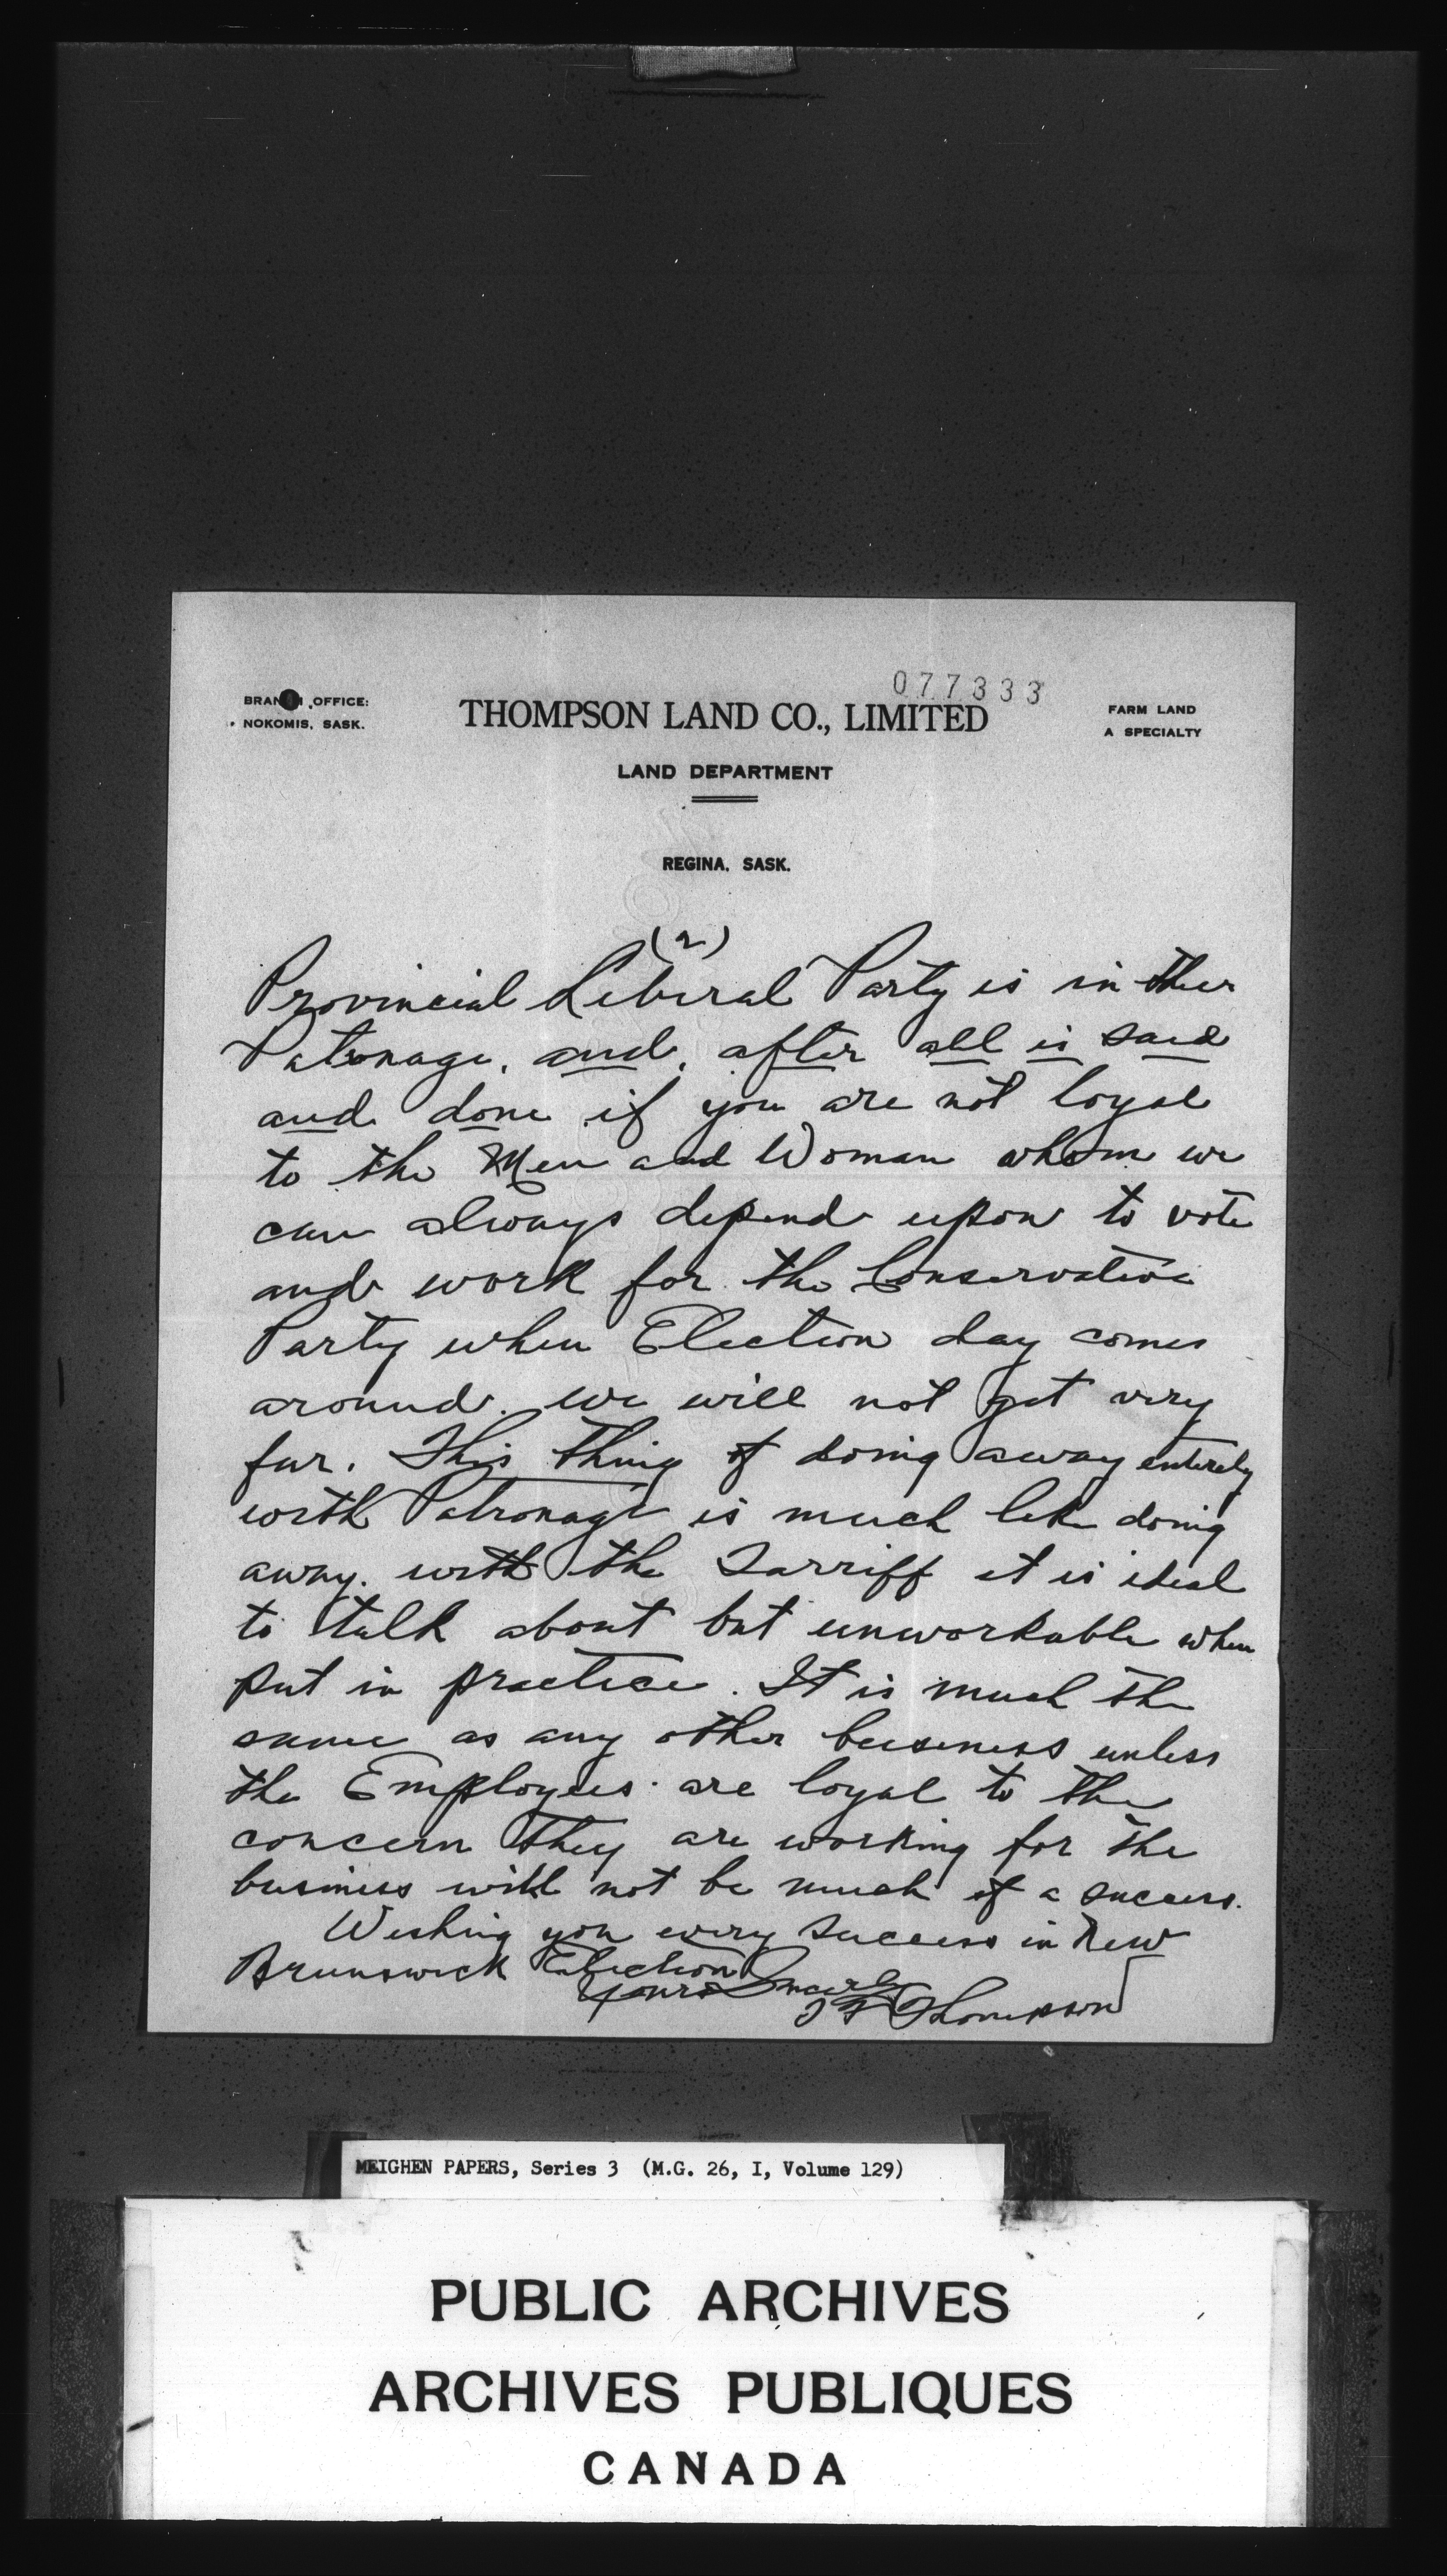 077333
BRANCH OFFICE:
NOKOMIS, SASK.
THOMPSON LAND CO., LIMITED
FARM LAND
A SPECIALTY
LAND DEPARTMENT
REGINA, SASK.
(2)
Provincial Liberal Party is in their
Patronage, and, after all is said
and done if you are not loyal
to the Men and Woman whom we
can always depend upon to vote
and work for the Conservative
Party when Election day comes
around. we will not get very
far. This thing of doing away entirely
with Patronage is much like doing
away. with the Tarriff it is ideal
to talk about but unworkable when
put in practice. It is much the
same as any other business unless
the Employees are loyal to the
concern they are working for the
business will not be much of a success.
Wishing you every success in New
Brunswick Election
Yours Sincerely
Thompson
MEIGHEN PAPERS, Series 3 (M.G. 26, I, Volume 129)
PUBLIC ARCHIVES
ARCHIVES PUBLIQUES
CANADA